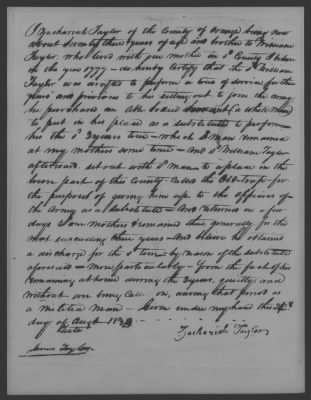 I Zachariah Taylor of the County of Orange being now
about Seventy three years of age and brother to William
Taylor, who lived with our mother in sd County I believe
in the year 1777 - do hereby Certify that the sd William
Taylor was drafted to perform a tour of service for three
years and previous to his setting out to join the army
he purchased an Able bodied (a White Man)
to put in his place as a substitute to perform
his the 3 years tour - which sd man remained
at my mothers some time - And sd William Taylor
afterward set out with sd man to a place in the
lower part of this County Called the Old-trap - for
the purpose of giving him up to the officers of
the Army as a Substitute - And returned in a few
days to our mothers & remained there generally for the
most succeeding three years - And I believe he obtained
a discharge for the sd tour - by reason of the substitute
aforesaid - More particularly - from the fact of his
remaining at home during the 3 years, quietly, and
without ever being Call'd on, during that period as
a Militia Man - Given under my hand this
day of Augt 183
Teste
Zachariah Taylor
James Taylor